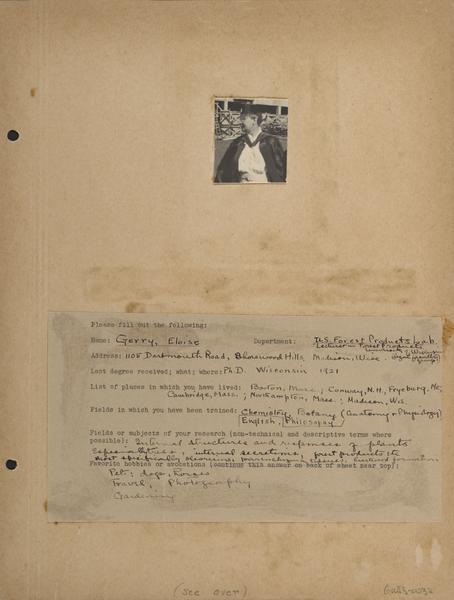 Please fill out the following:
Name: Gerry, Eloise Department: U.S. Forest Products Lab.
Lecturer in Forest Products
Address: 1105 Dartmouth Road, Shorewood Hills, Madison, Wisc.
Last degree received; what; where: Ph.D. Wisconsin 1921
List of places in which you have lived: Boston, Mass.; Conway, N.H., Fryeburg, Me,
Cambridge, Mass.; Northampton, Mass.; Madison, Wis.
Fields in which you have been trained: Chemistry, Botany (Anatomy & Physiology)
English, Philosophy
Fields or subjects of your research (non-technical and descriptive terms where
possible): Internal structures and responses of plants
internal secretions,
most specifically
Favorite hobbies or avocations (continue this answer on back of sheet near top):
Pets; dogs, horses
Travel, Photography
Gardening
(see over)